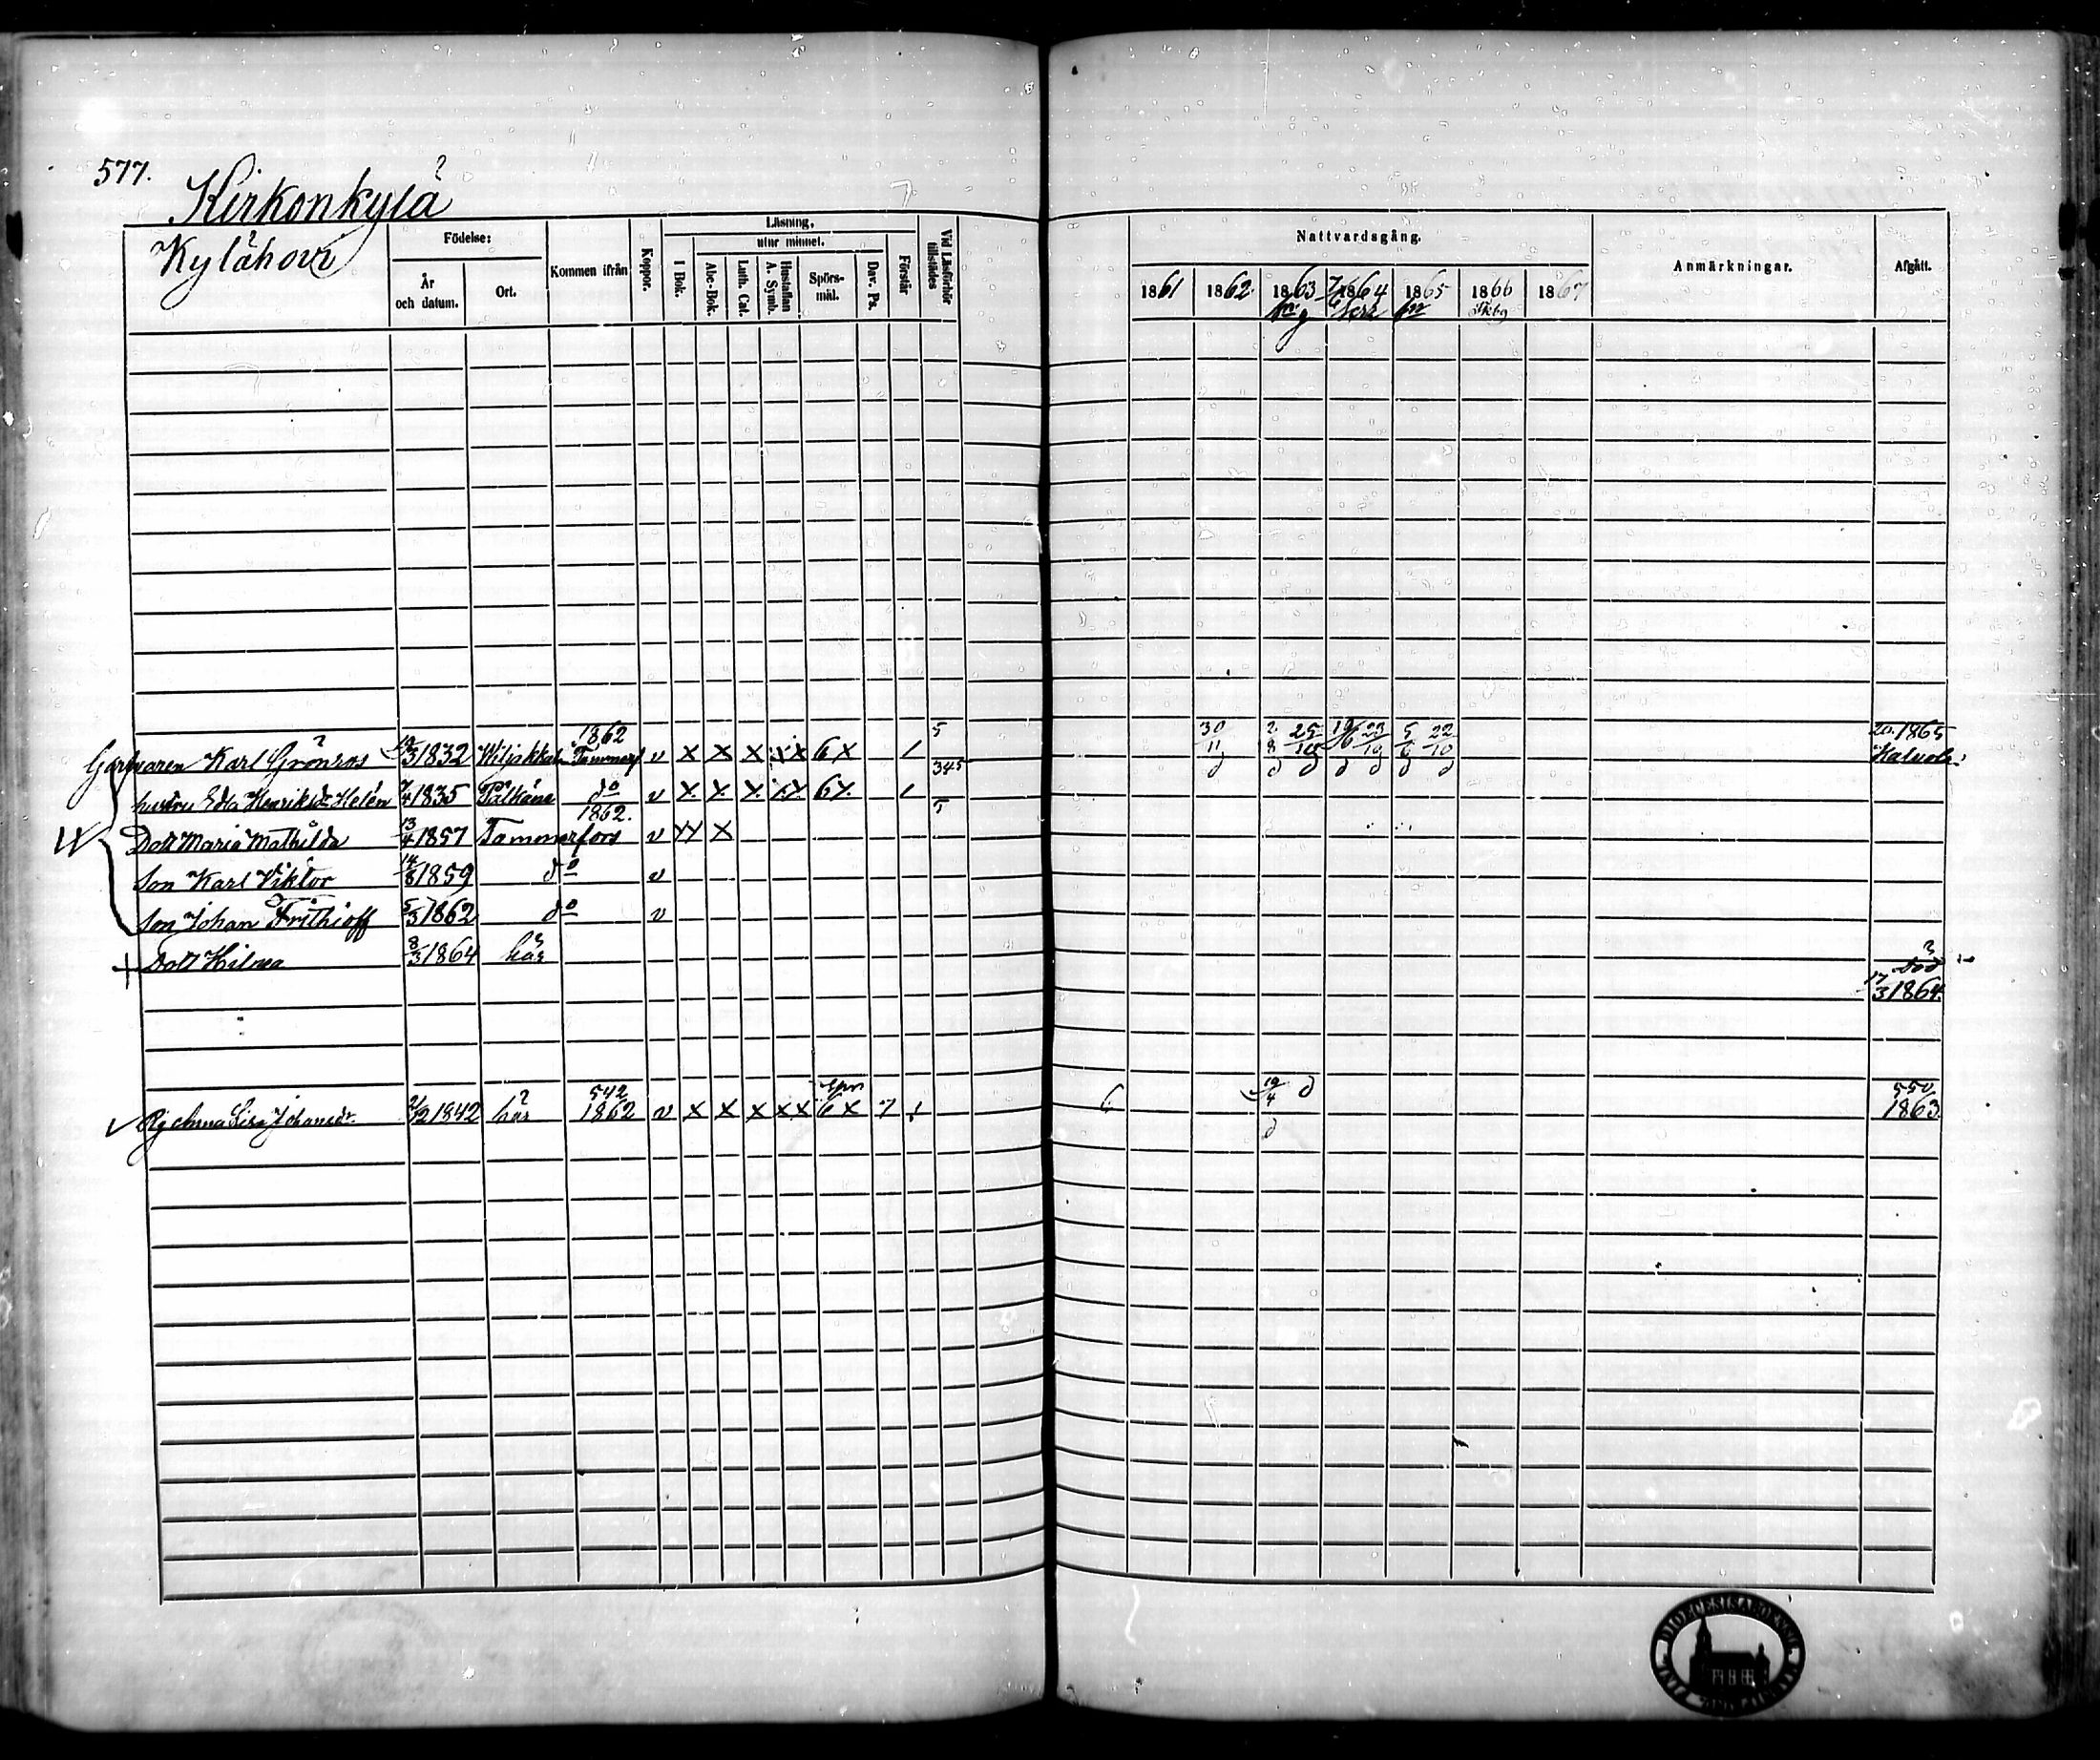 577.
Kirkonkylä
Kylähovi
Födelse:
År och datum.
Ort.
Kommen ifrån
Koppor.
Läsning,
utur minnet.
I Bok.
Abc-Bok.
Luth. Cat.
Hustaflan A. Symb.
Spörsmål.
Dav. Ps.
Förstår
Vid Läsförhör tillstädes
Nattvardsgång.
1861 1862 1863 1864 1865 1866 1867
Anmärkningar.
Afgått.
1862 5 30/11 2/8 25/10 23/10 5/6 22/10 20. 1865
Karl Grönros 3 1832 Tammerf v X X X X X 6 X 345
hustru Eda Henriksdr Helén 7/4 1835 Pälkäne do v X X X X X 6 X
1862.
Dott Maria Mathilda 13/4 1857 Tammerfors v X X X
Son Karl Viktor 14/8 1859 do v
Son Johan Frithioff 5/3 1862 do v
Dott Hilma 8/3 1864 här död
17/3 1864.
542 19/4 550
Anna Johansdr 2 1842 här 1862 v X X X X X 6 X 7 6 1863
DIOECESIS ABOENSIS